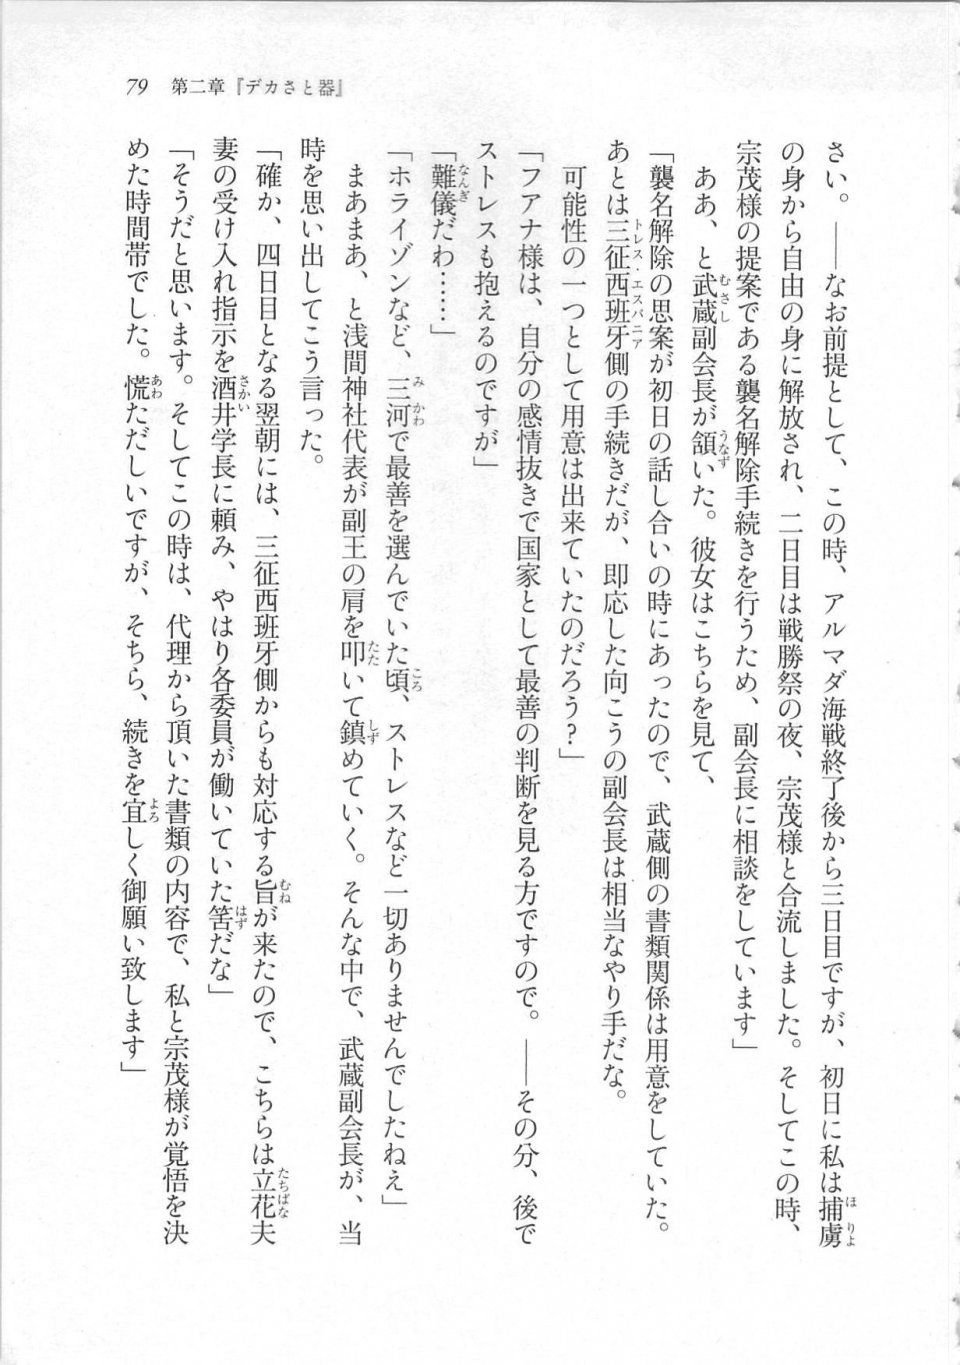 79　第二章『デカさと器』
さい。――なお前提として、この時、アルマダ海戦終了後から三日目ですが、初日に私は捕虜
の身から自由の身に解放され、二日目は戦勝祭の夜、宗茂様と合流しました。そしてこの時、
宗茂様の提案である襲名解除手続きを行うため、副会長に相談をしています」
　ああ、と武蔵副会長が頷いた。彼女はこちらを見て、
「襲名解除の思案が初日の話し合いの時にあったので、武蔵側の書類関係は用意をしていた。
あとは三征西班牙側の手続きだが、即応した向こうの副会長は相当なやり手だな。
　可能性の一つとして用意は出来ていたのだろう？」
「フアナ様は、自分の感情抜きで国家として最善の判断を見る方ですので。――その分、後で
ストレスも抱えるのですが」
「難儀だわ……」
「ホライゾンなど、三河で最善を選んでいた頃、ストレスなど一切ありませんでしたねえ」
　まあまあ、と浅間神社代表が副王の肩を叩いて鎮めていく。そんな中で、武蔵副会長が、当
時を思い出してこう言った。
「確か、四日目となる翌朝には、三征西班牙側からも対応する旨が来たので、こちらは立花夫
妻の受け入れ指示を酒井学長に頼み、やはり各委員が働いていた筈だな」
「そうだと思います。そしてこの時は、代理から頂いた書類の内容で、私と宗茂様が覚悟を決
めた時間帯でした。慌ただしいですが、そちら、続きを宜しく御願い致します」